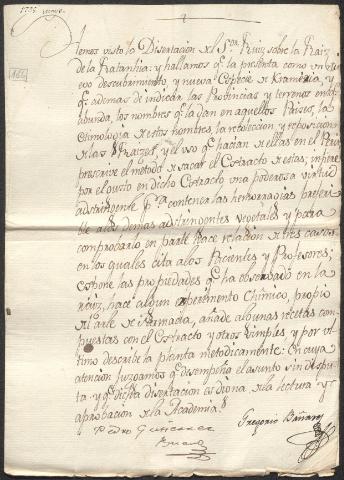 1
1796
162
Hemos visto la Disertacion del Sor Ruiz sobre la Raiz
de la Ratanhia: y hallamos qe la presenta como un nu
evo descubrimiento y nueva Especie de Krameria, y
qe ademas de indicar las Provincias y terrenos en qe
abunda, los nombres qe la dan en aquellos Paises, la
etimologia de estos nombres, la recoleccion y reposicion
de las Raizes, y el uso qe hacian de ellas en el Perú
prescrive el metodo de sacar el Extracto de estas; infiere
por el gusto en dicho Extracto una poderosa virtud
adstringente pa contener las hemorragias preferi
ble a los demas adstringentes vegetales y para
comprobarlo en parte hace relacion de tres casos
en los quales cita a los Pacientes y Profesores;
expone las propiedades qe ha observado en la
raiz, hace algun experimento Chîmico, propio
del arte de Farmacia, añade algunas recetas com
puestas con el Extracto y otros simples y por ul
timo describe la planta metodicamente: En cuya
atencion juzgamos qe desempeña el asunto sin dispu
ta y qe dicha disertacion es digna de la lectura y
aprobacion de la Academia.
Pedro Gutierrez
Bueno
Gregorio Bañares